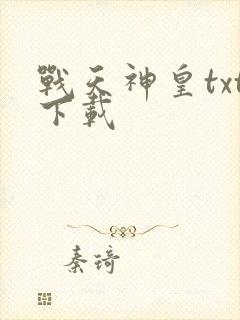 戰天神皇txt
下載
秦琦